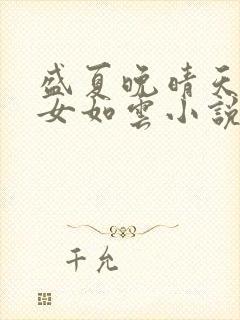 盛夏晚晴天
女如雲小說
千允